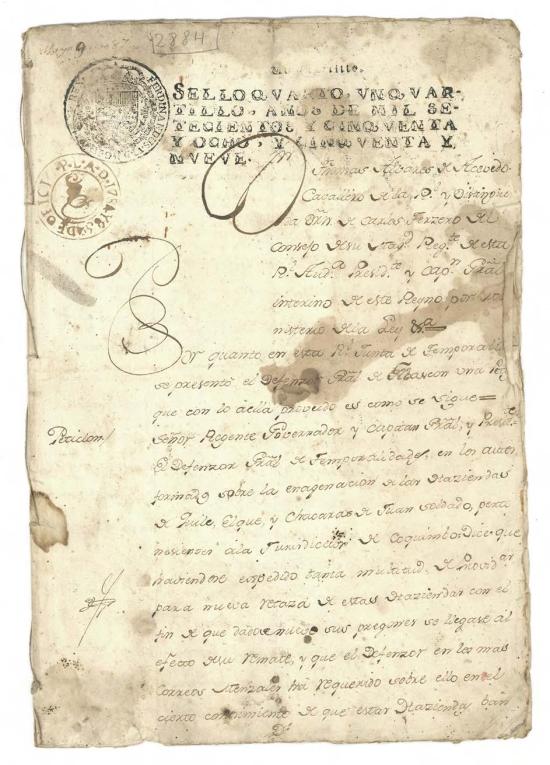 2884
Un quartillo.
SELLO QVARTO, VN QVAR-
TILLO, AÑOS DE MIL SE-
TECIENTOS Y CINQVENTA
Y OCHO, Y CINQVENTA Y
NVEVE.
Dn Thomas Alvares de Acevedo
Cavallero de la Rl. y Distingui
da Orn. de Carlos Terzero del
Consejo de su Magd. Regte. de esta
Rl. Auda. Presidte. y Capn. Gral
interino de este Reyno por
ministerio de la Ley &a
Por quanto en esta Rl. Junta de Temporalids
se presentó el Defenzor Gral de ellas con una
que con lo á ella proveido es como se sigue=
Peticion/
Señor Regente Governador y Capitan Gral, y Presidte
El Defenzor Gral de Temporalidades, en los autos
formados sobre la enagenacion de las Haziendas
de Quile, Elque, y Chacaras de Juan Soldado, perte
nesientes a la Jurisdiccion de Coquimbo Dice que
haviendose expedido tanta multitud de Provids
para nueva retaza de estas Haziendas con el
fin de que dados nuevos sus pregones se llegase al
efecto de su remate, y que el Defenzor en los mas
correos Menzales ha requerido sobre ello en el
cierto conosimiento de que estas Haziendas han